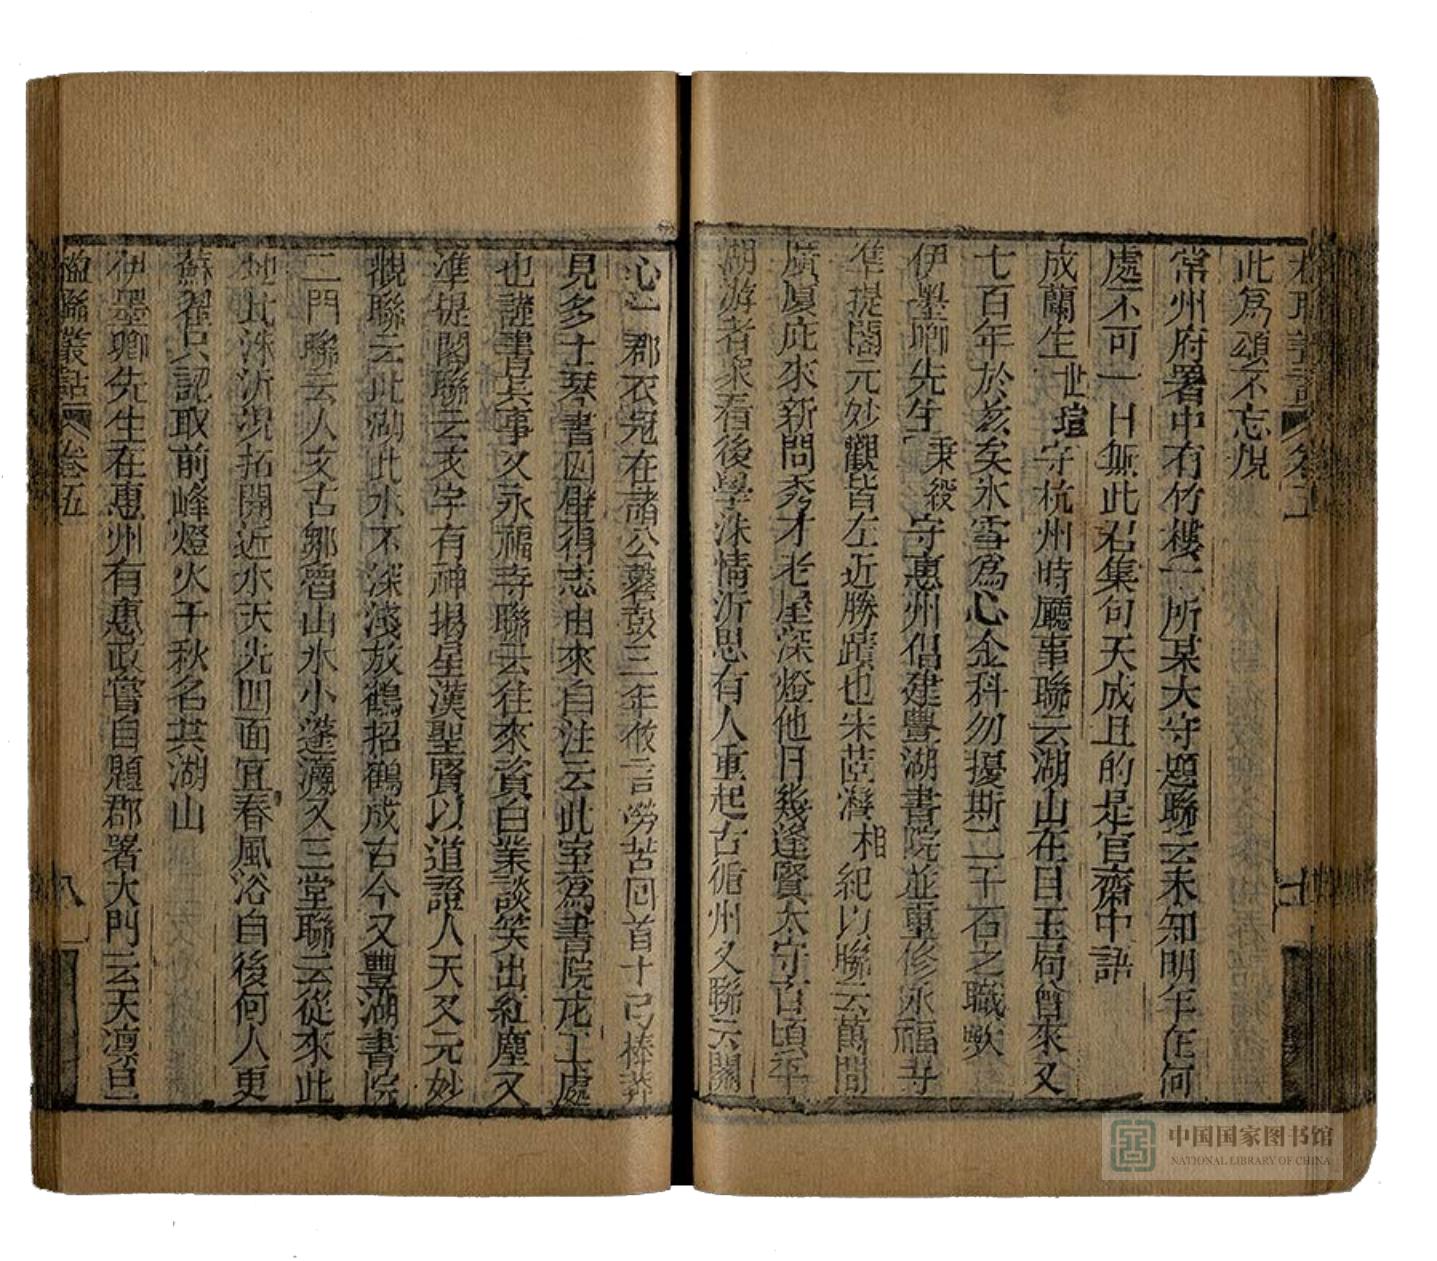 此為頌不忘規
常州府署中有竹樓一所某大守題聯云未知明年在何
處不可一日無此君集句天成且的是官齋中語
成蘭生世瑄守杭州時廳事聯云湖山在目玉局曾來又
七百年於茲矣氷雪為心金科勿擾斯二千石之職歟
伊墨卿先生秉綬守惠州倡建豐湖書院並重修永福寺
準提閣元妙觀皆左近勝蹟也朱茝湑相紀以聯云萬間
廣厦庇來新問秀才老屋深燈他日幾逢賢太守百頃平
湖游者衆看後學洙情沂思有人重起古循州又聯云關
心一郡衣冠在諸公鼙鼓三年攸言勞苦回首十
見多士琴書四壁得志由來自注云此室為書院庀工處
也謹書其事又永福寺聯云往來資白業談笑出紅塵又
準提閣聯云文字有神揭星漢聖賢以道證人天又元妙
觀聯云此湖此水不深淺放鶴招鶴成古今又豐湖書院
二門聯云人文古鄒魯山水小蓬瀛又三堂聯云從來此
地此洙沂況拓開近水天光四面宜春風浴自後何人更
蘇翟只認取前峰燈火千秋名共湖山
伊墨卿先生在惠州有惠政嘗自題郡署大門云天凛旦
楹聯叢話 卷五 八
中国国家图书馆
NATIONAL LIBRARY OF CHINA